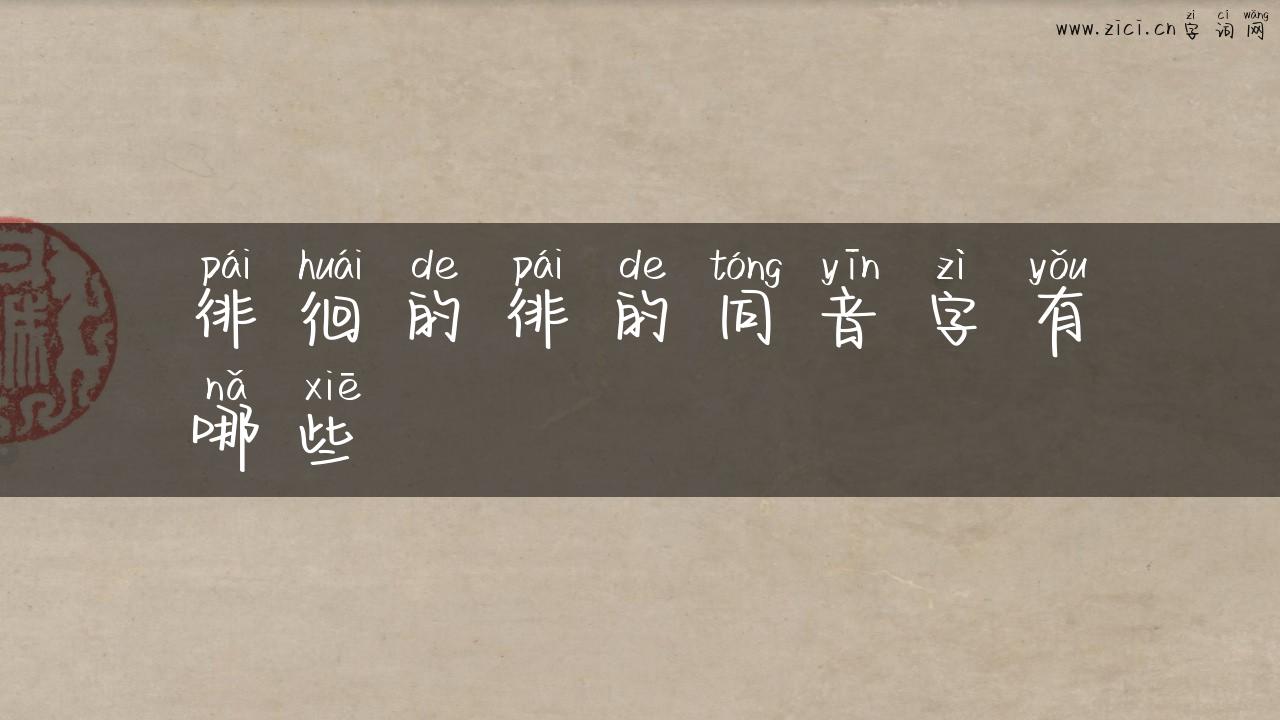 www.zici.cn zì cí wǎng
字词网
pái huái de pái de tóng yīn zì yǒu
徘徊的徘的同音字有
nǎ xiē
哪些